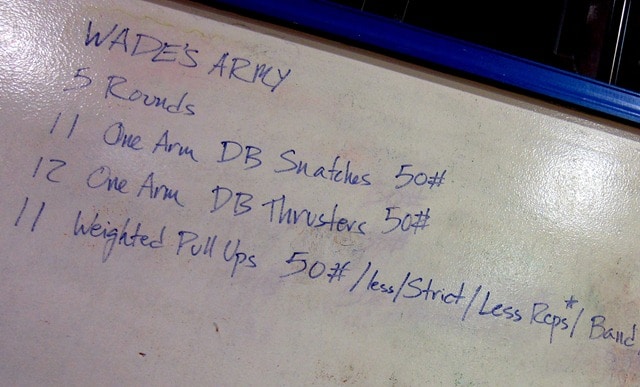 WADE'S ARMY
5 Rounds
11 One Arm DB Snatches 50#
12 One Arm DB Thrusters 50#
11 Weighted Pull Ups 50#/less/Strict/Less Reps*/Band